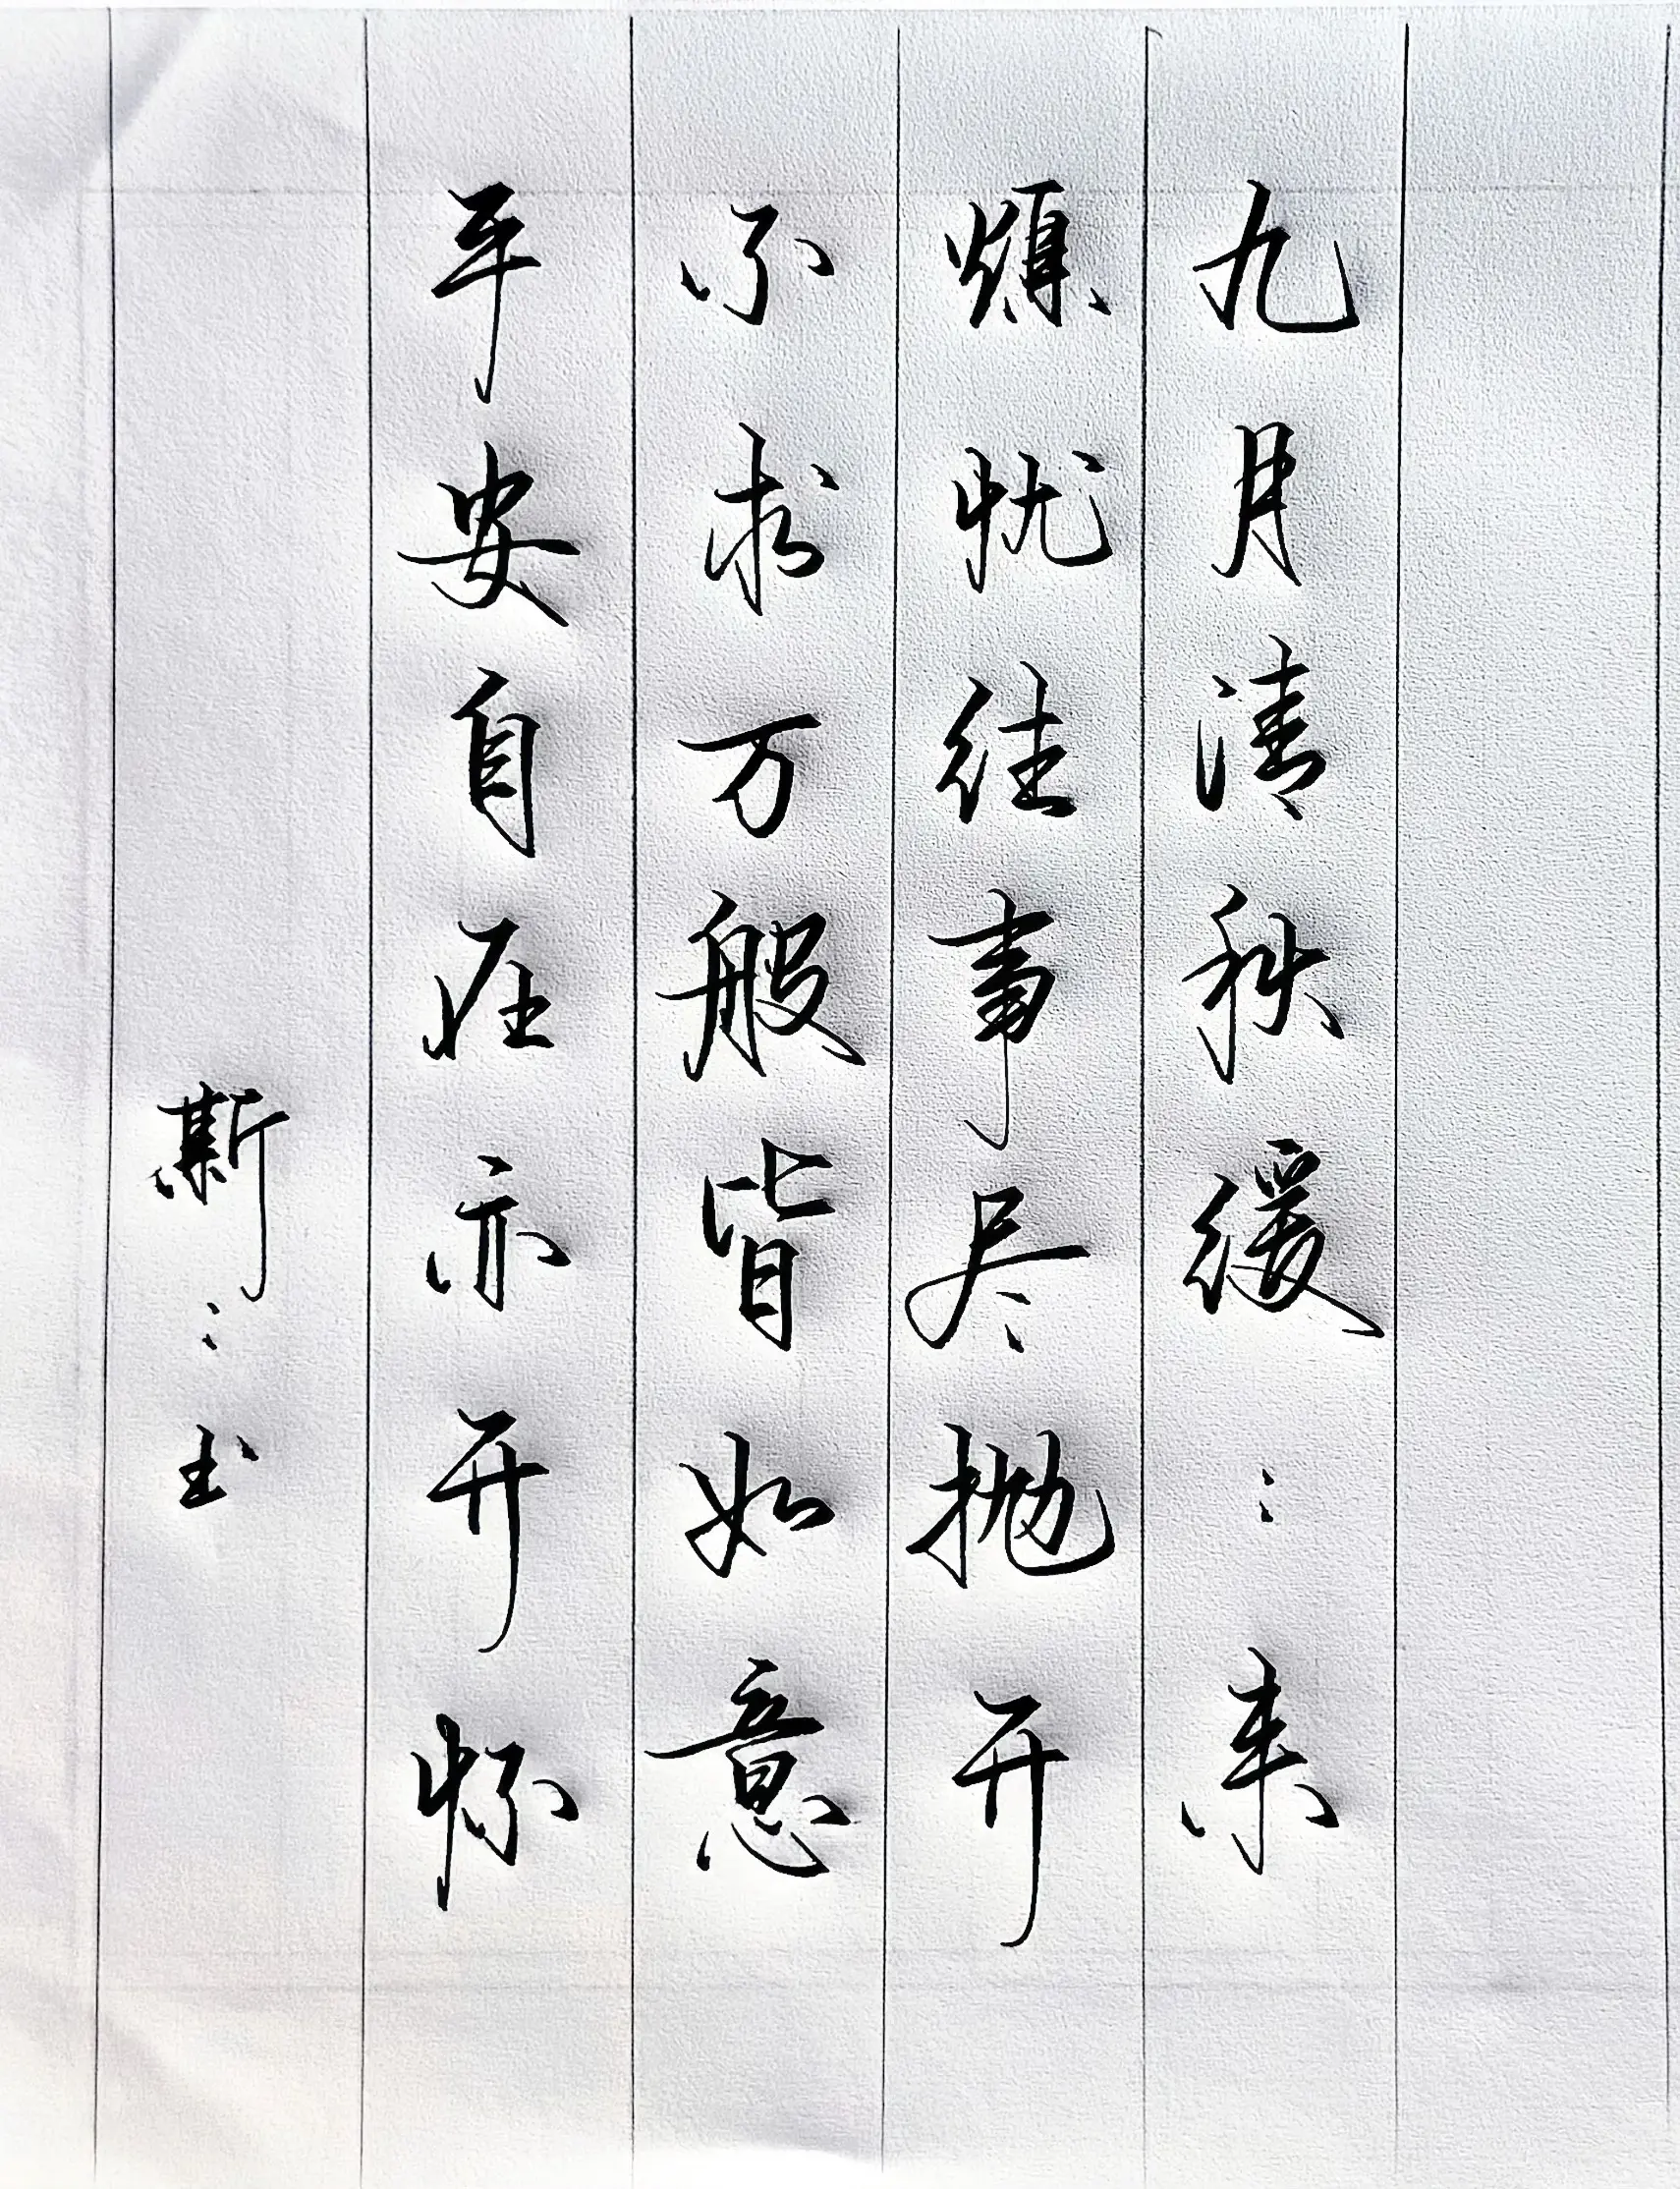 九月清秋缓缓来
烦忧往事尽抛开
不求万般皆如意
平安自在亦开怀
斯斯书